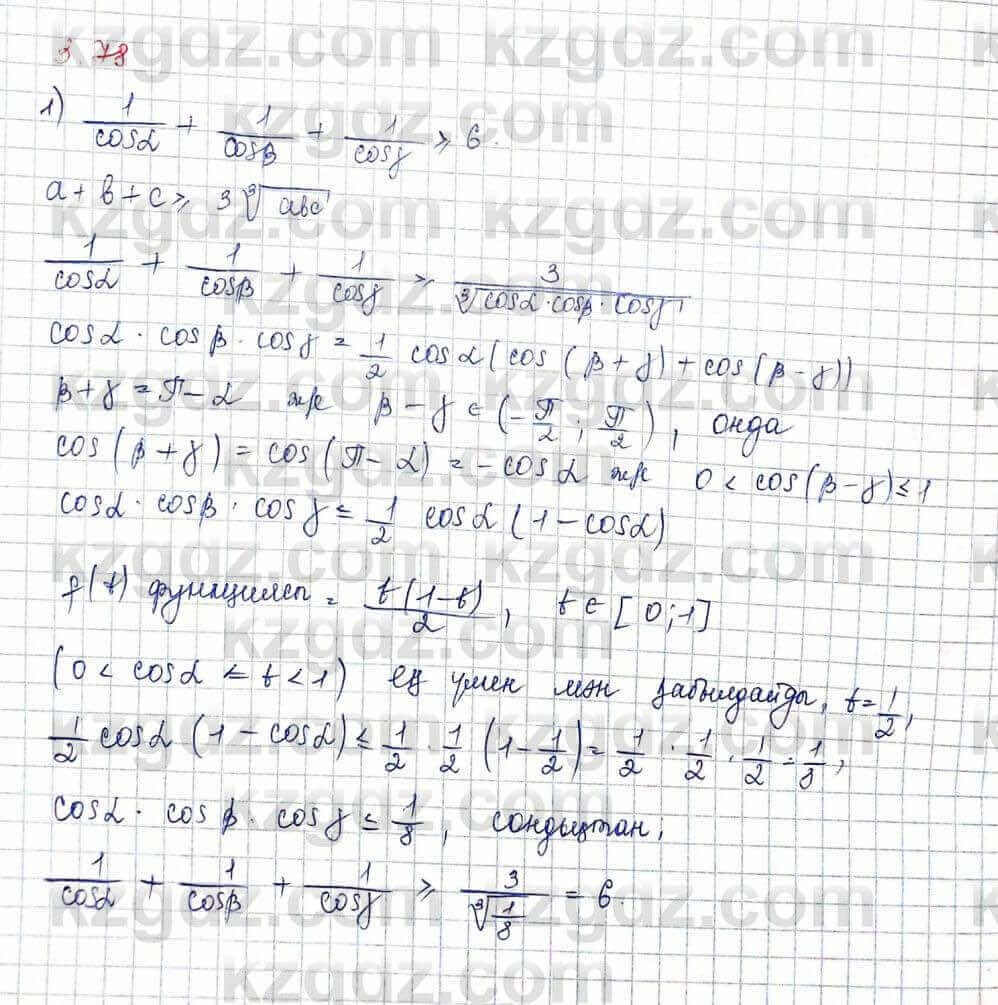 3.78
1) 1/cosα + 1/cosβ + 1/cosγ ≥ 6.
a + b + c ≥ 3∛abc
1/cosα + 1/cosβ + 1/cosγ ≥ 3/∛(cosα·cosβ·cosγ)
cosα · cosβ · cosγ = 1/2 cosα(cos(β+γ) + cos(β-γ))
β+γ = π-α ж/е β-γ ∈ (-π/2 ; π/2), онда
cos(β+γ) = cos(π-α) = -cosα ж/е 0 < cos(β-γ) ≤ 1
cosα · cosβ · cosγ ≤ 1/2 cosα (1-cosα)
f(t) функциясы = t(1-t)/2, t ∈ [0;1]
(0 < cosα = t < 1) ең үлкен мән қабылдайды, t = 1/2,
1/2 cosα (1-cosα) ≤ 1/2 · 1/2 (1-1/2) = 1/2 · 1/2 · 1/2 = 1/8,
cosα · cosβ · cosγ ≤ 1/8, сондықтан,
1/cosα + 1/cosβ + 1/cosγ ≥ 3/∛(1/8) = 6.
kzgdz.com